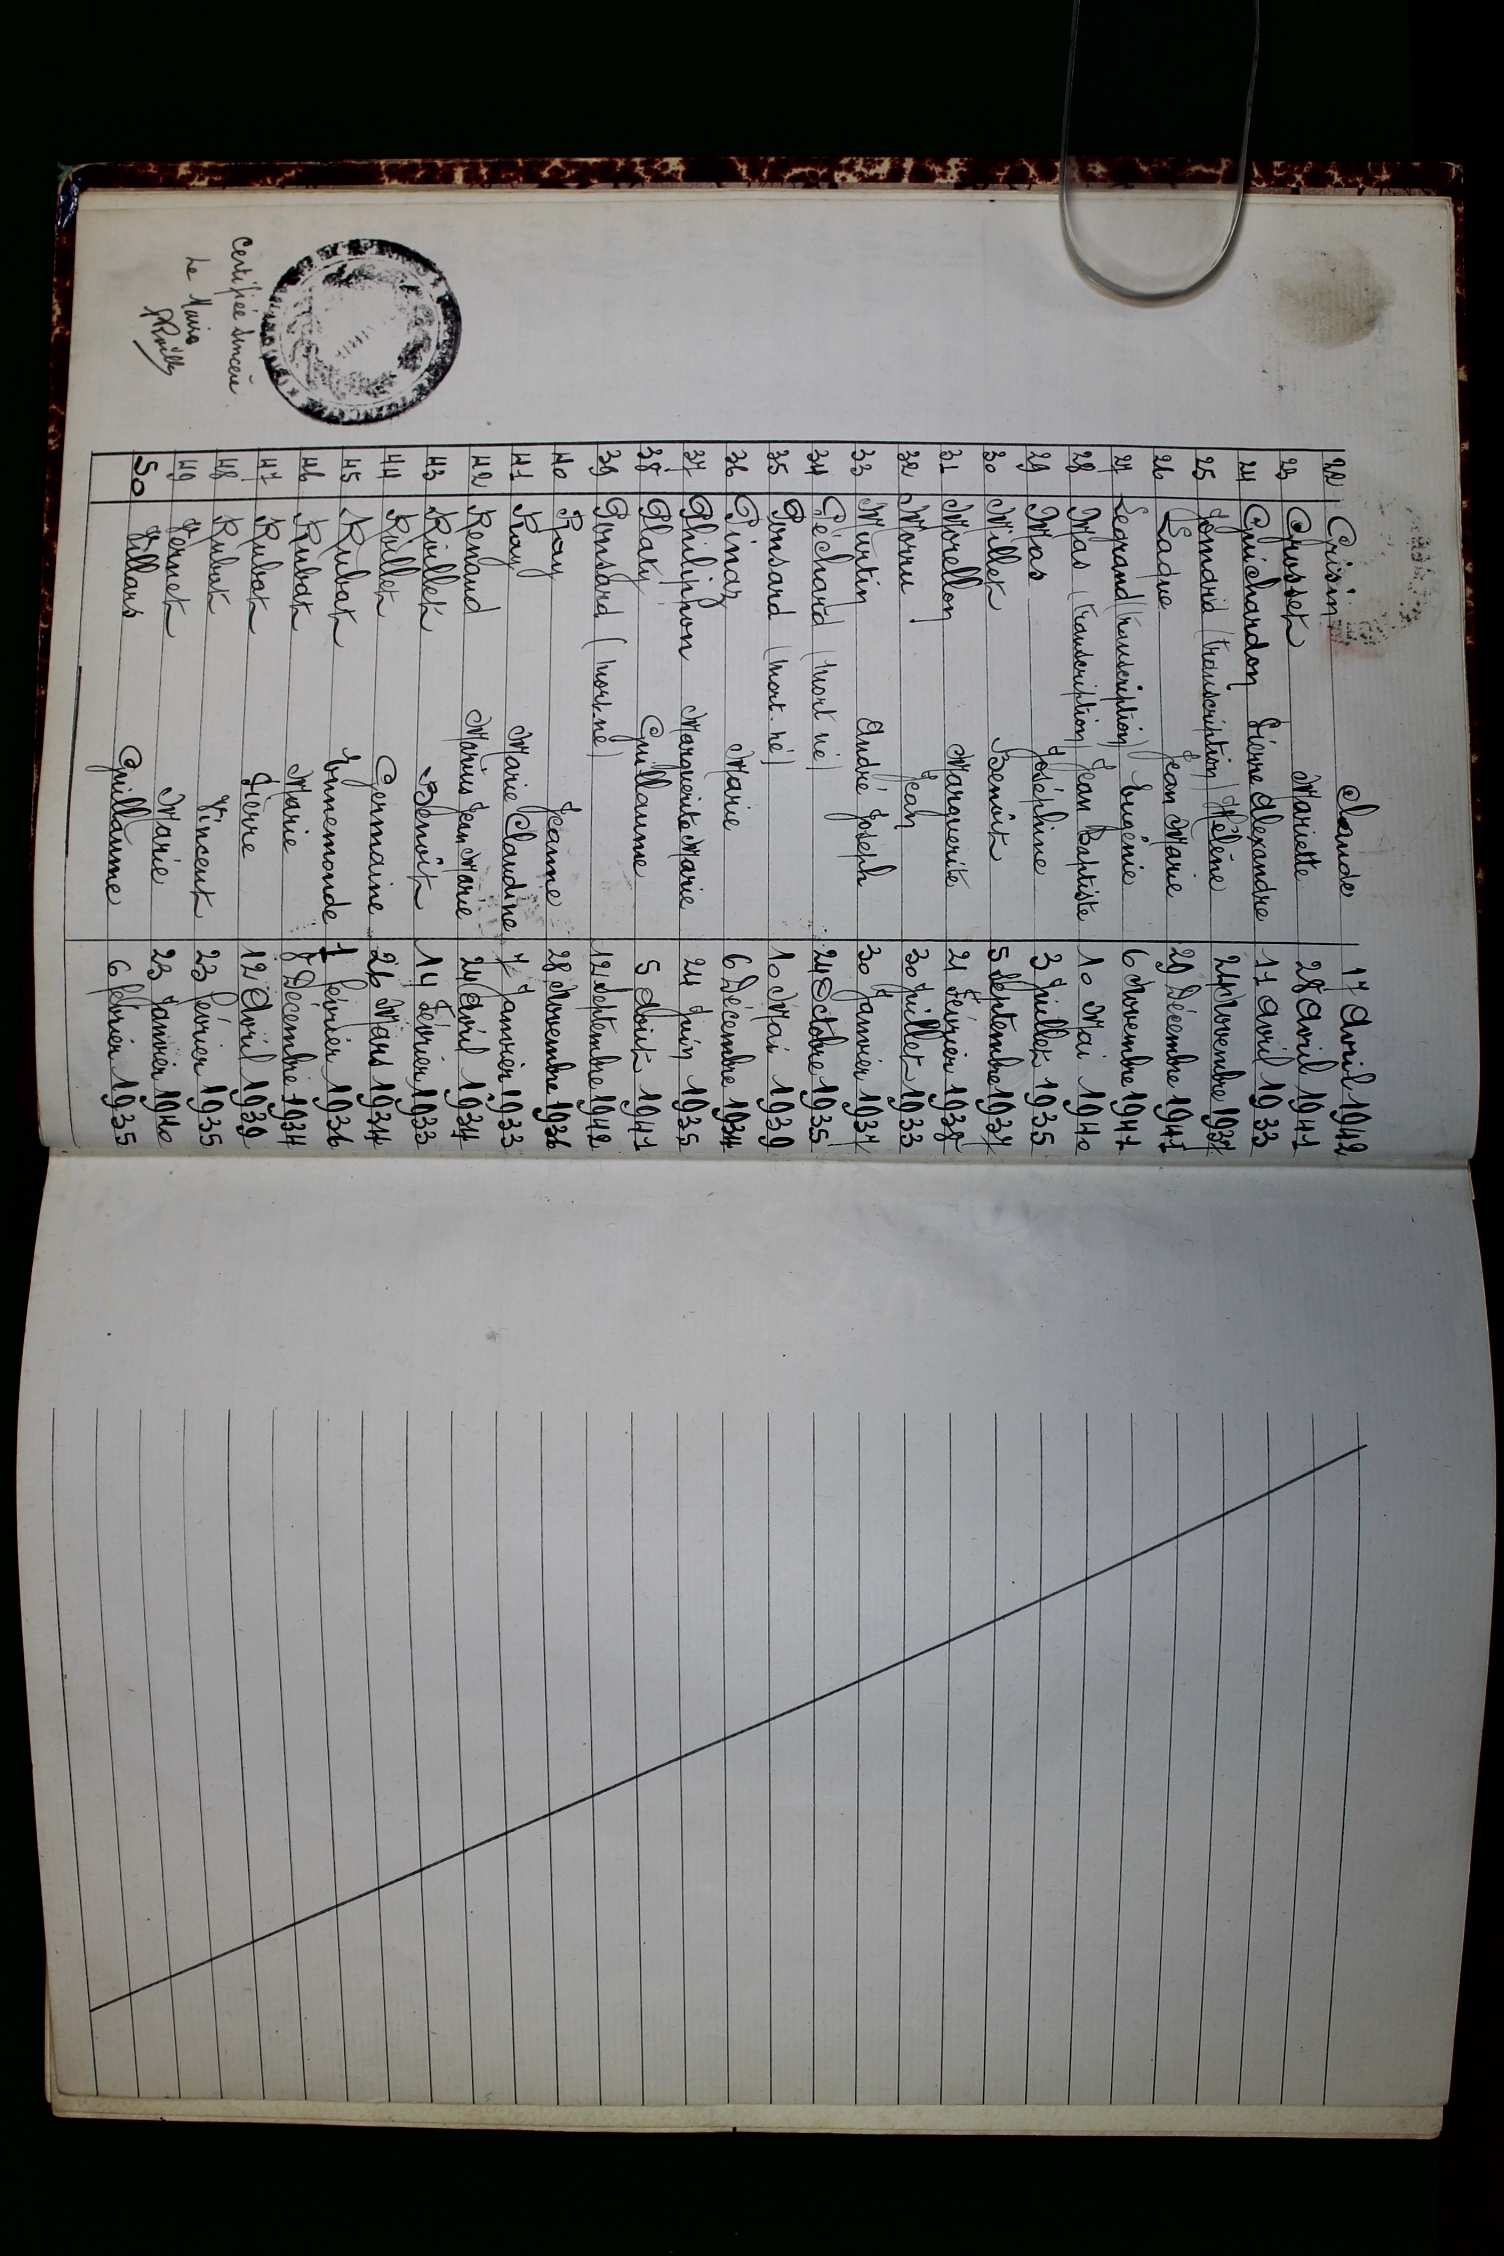 22 Crisin Claude 17 Avril 1942
23 Cusset Mariette 28 Avril 1941
24 Guichardon Pierre Alexandre 11 Avril 1933
25 (transcription) Hélène 24 Novembre 1937
26 Ladue Jean Marie 29 Décembre 1941
27 Legrand (transcription) Eugénie 6 Novembre 1941
28 Mas (transcription) Jean Baptiste 10 Mai 1940
29 Mas Joséphine 3 Juillet 1935
30 Millet Benoît 5 Septembre 1937
31 Morellon Marguerite 21 Février 1938
32 Jean 30 Juillet 1933
33 André Joseph 30 Janvier 1937
34 Péchard (mort né) 24 Octobre 1935
35 Ponsard (mort-né) 10 Mai 1939
36 Pinay Marie 6 Décembre 1934
37 Philiphon Marguerite Marie 24 Juin 1935
38 Platy Guillaume 5 Août 1941
39 Ponsard (mort né) 12 Septembre 1942
40 Roy Jeanne 28 Novembre 1936
41 Roy Marie Claudine 7 Janvier 1933
42 Renaud Marius Jean Marie 24 Avril 1934
43 Riullet Benoît 14 Février 1933
44 Riullet Germaine 26 Mars 1934
45 Rubat Ennemonde 1 février 1936
46 Rubat Marie 8 Décembre 1934
47 Rubat Pierre 12 Avril 1939
48 Rubat Vincent 23 février 1935
49 Vernet Marie 23 Janvier 1940
50 Villars Guillaume 6 février 1935
Certifiée sincère
Le Maire